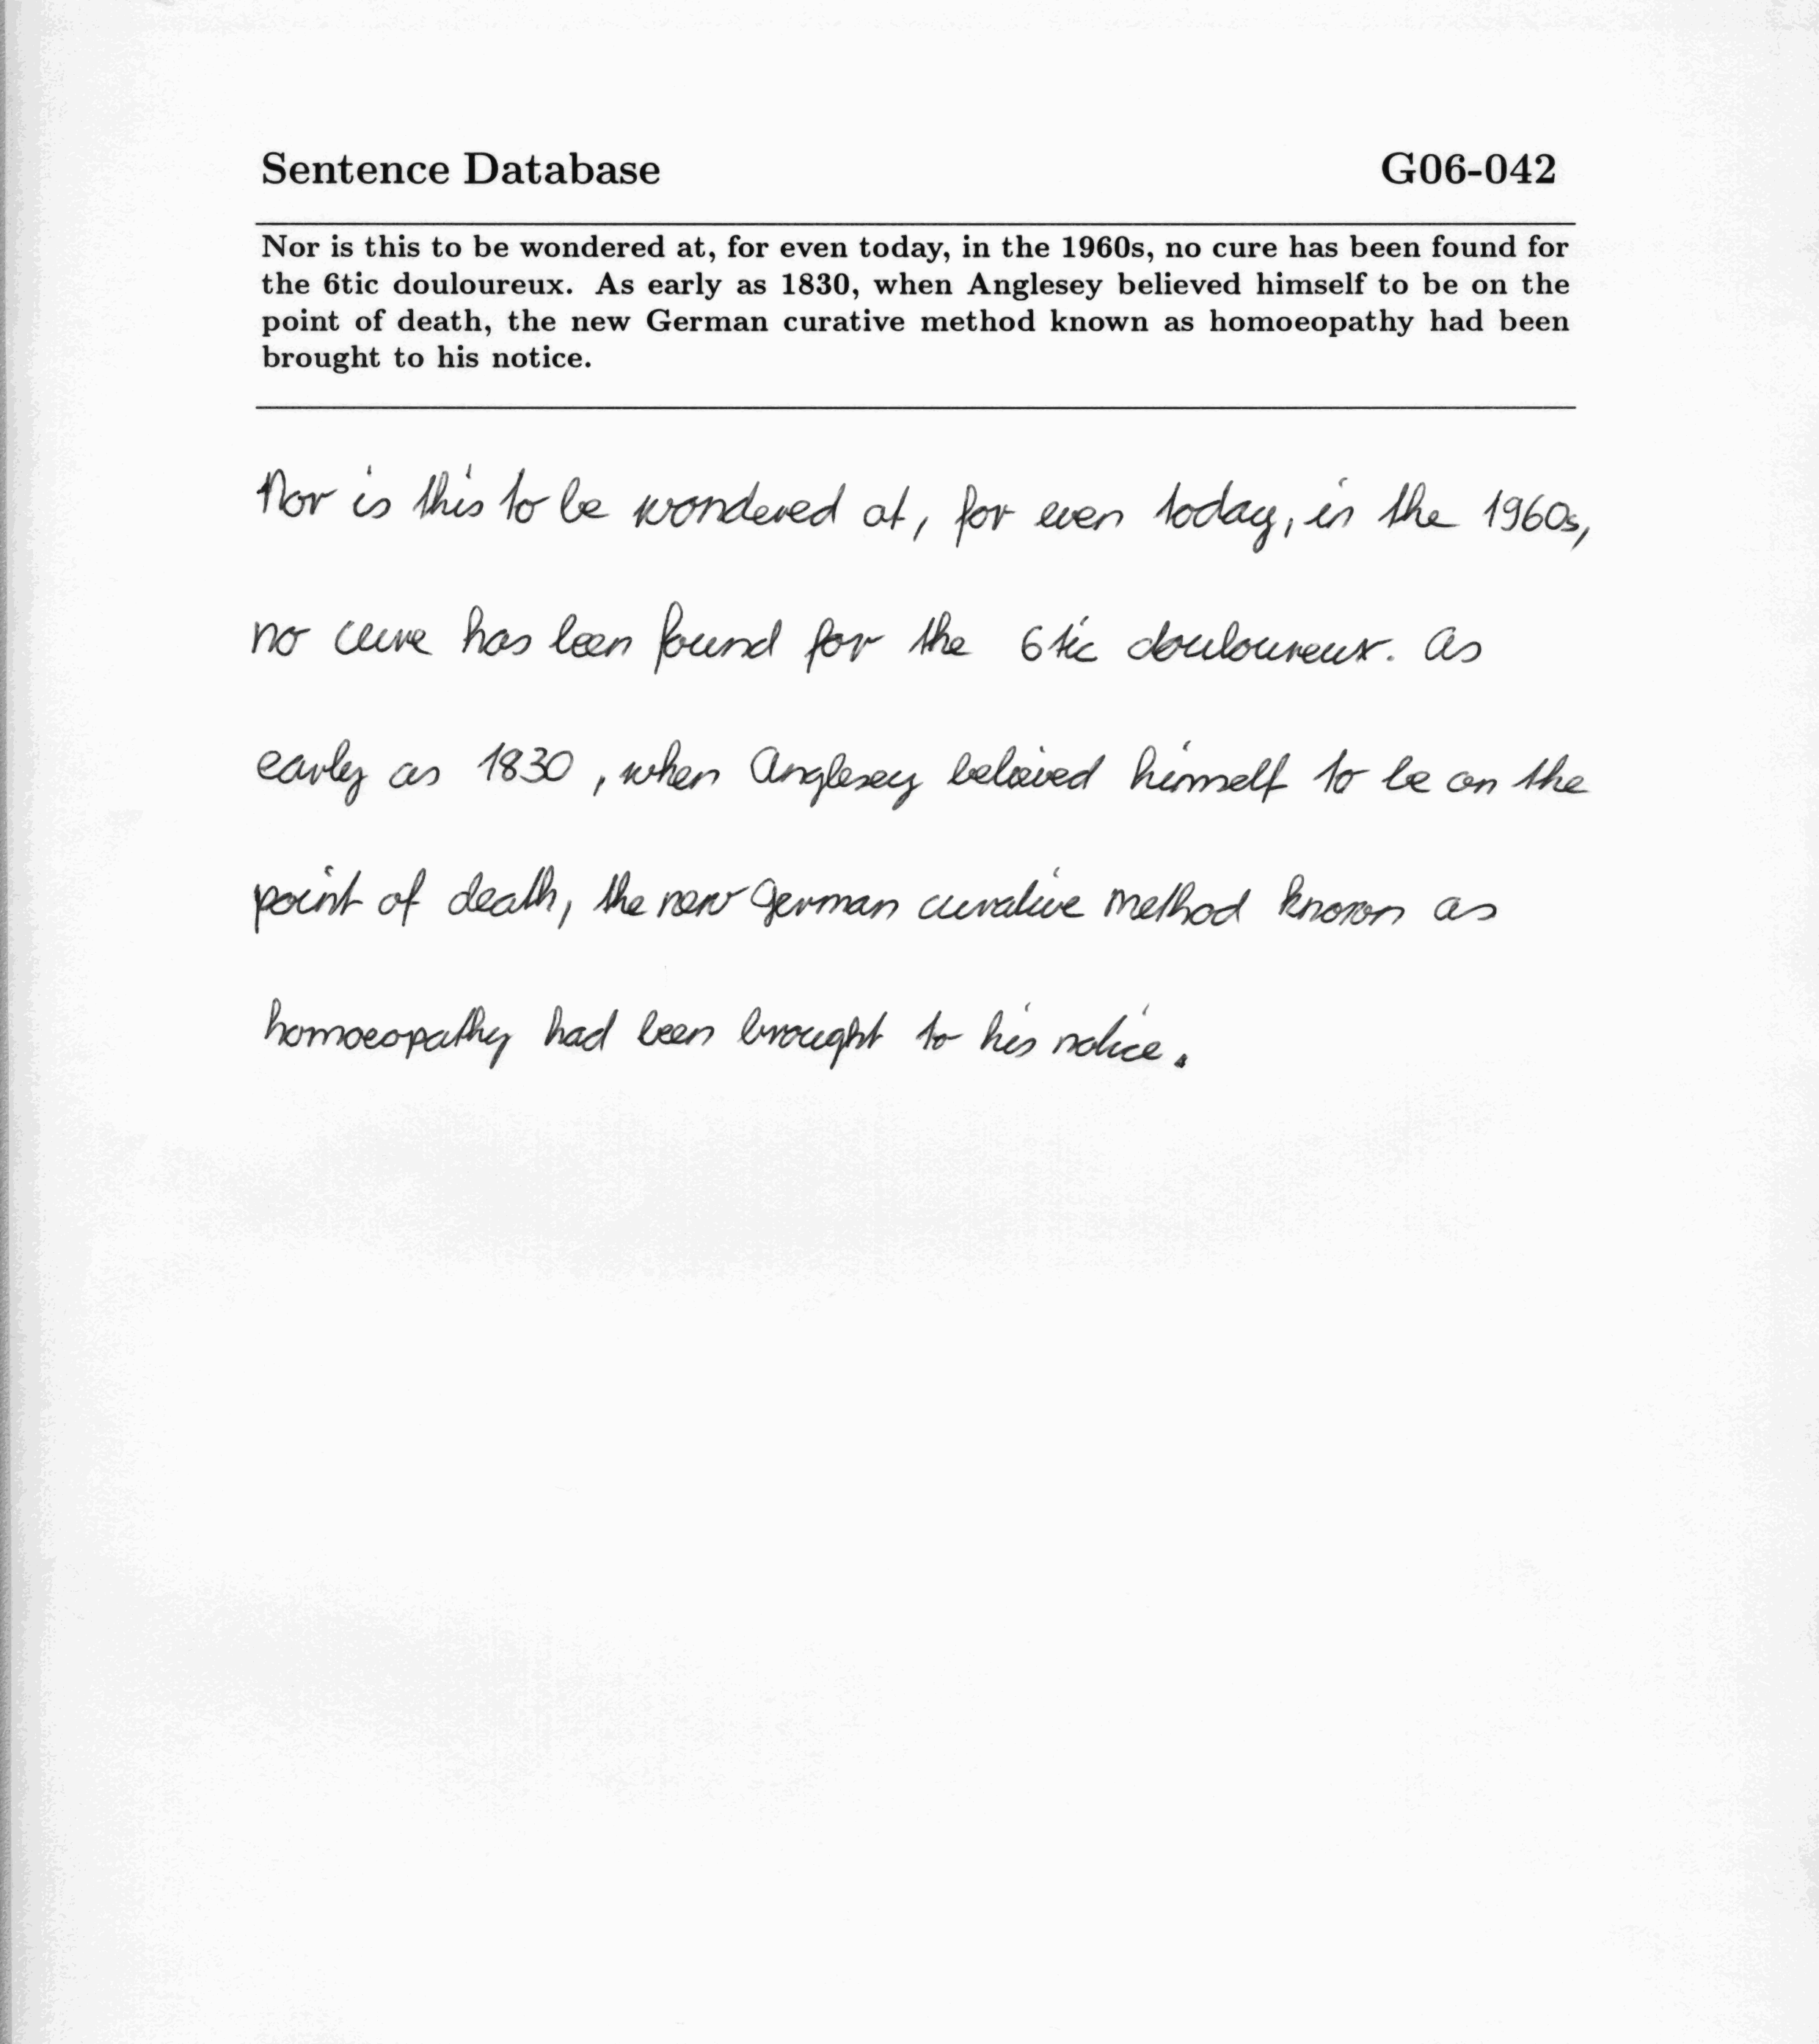 Sentence Database G06-042
Nor is this to be wondered at, for even today, in the 1960s, no cure has been found for
the 6tic douloureux. As early as 1830, when Anglesey believed himself to be on the
point of death, the new German curative method known as homoeopathy had been
brought to his notice.
Nor is this to be wondered at, for even today, in the 1960s,
no cure has been found for the 6tic douloureux. As
early as 1830, when Anglesey believed himself to be on the
point of death, the new German curative method known as
homoeopathy had been brought to his notice.